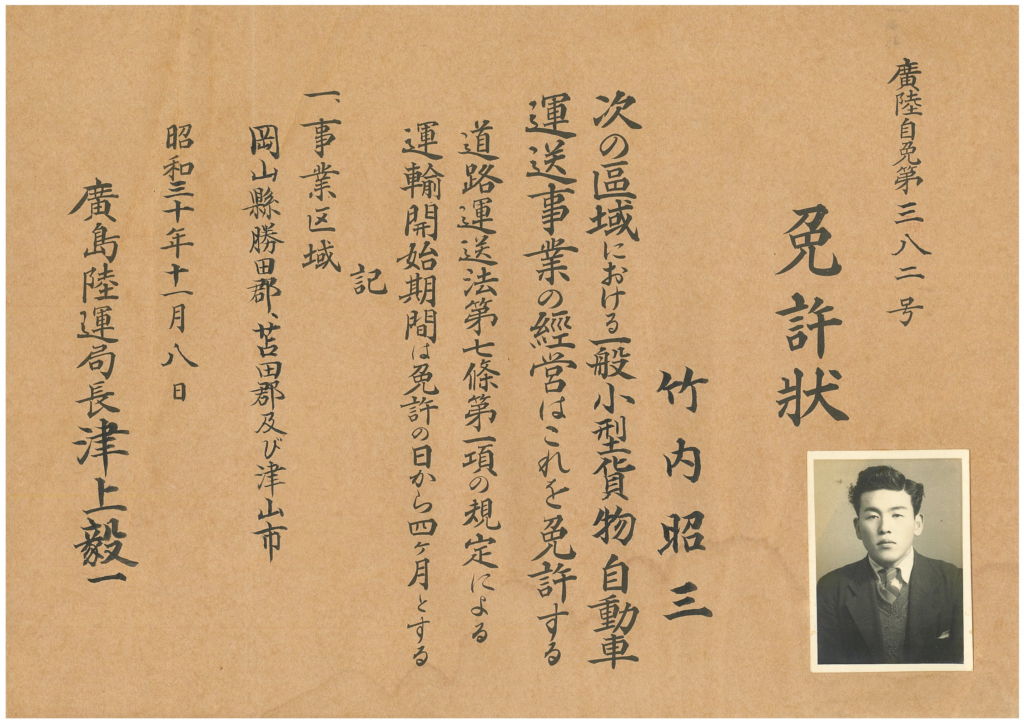 廣陸自免第三八二号
免許状
竹内昭三
次の區域における一般小型貨物自動車
運送事業の經営はこれを免許する
道路運送法第七條第一項の規定による
運輸開始期間は免許の日から四ヶ月とする
記
一、事業区域
岡山縣勝田郡、苫田郡及び津山市
昭和三十年十一月八日
廣島陸運局長津上毅一